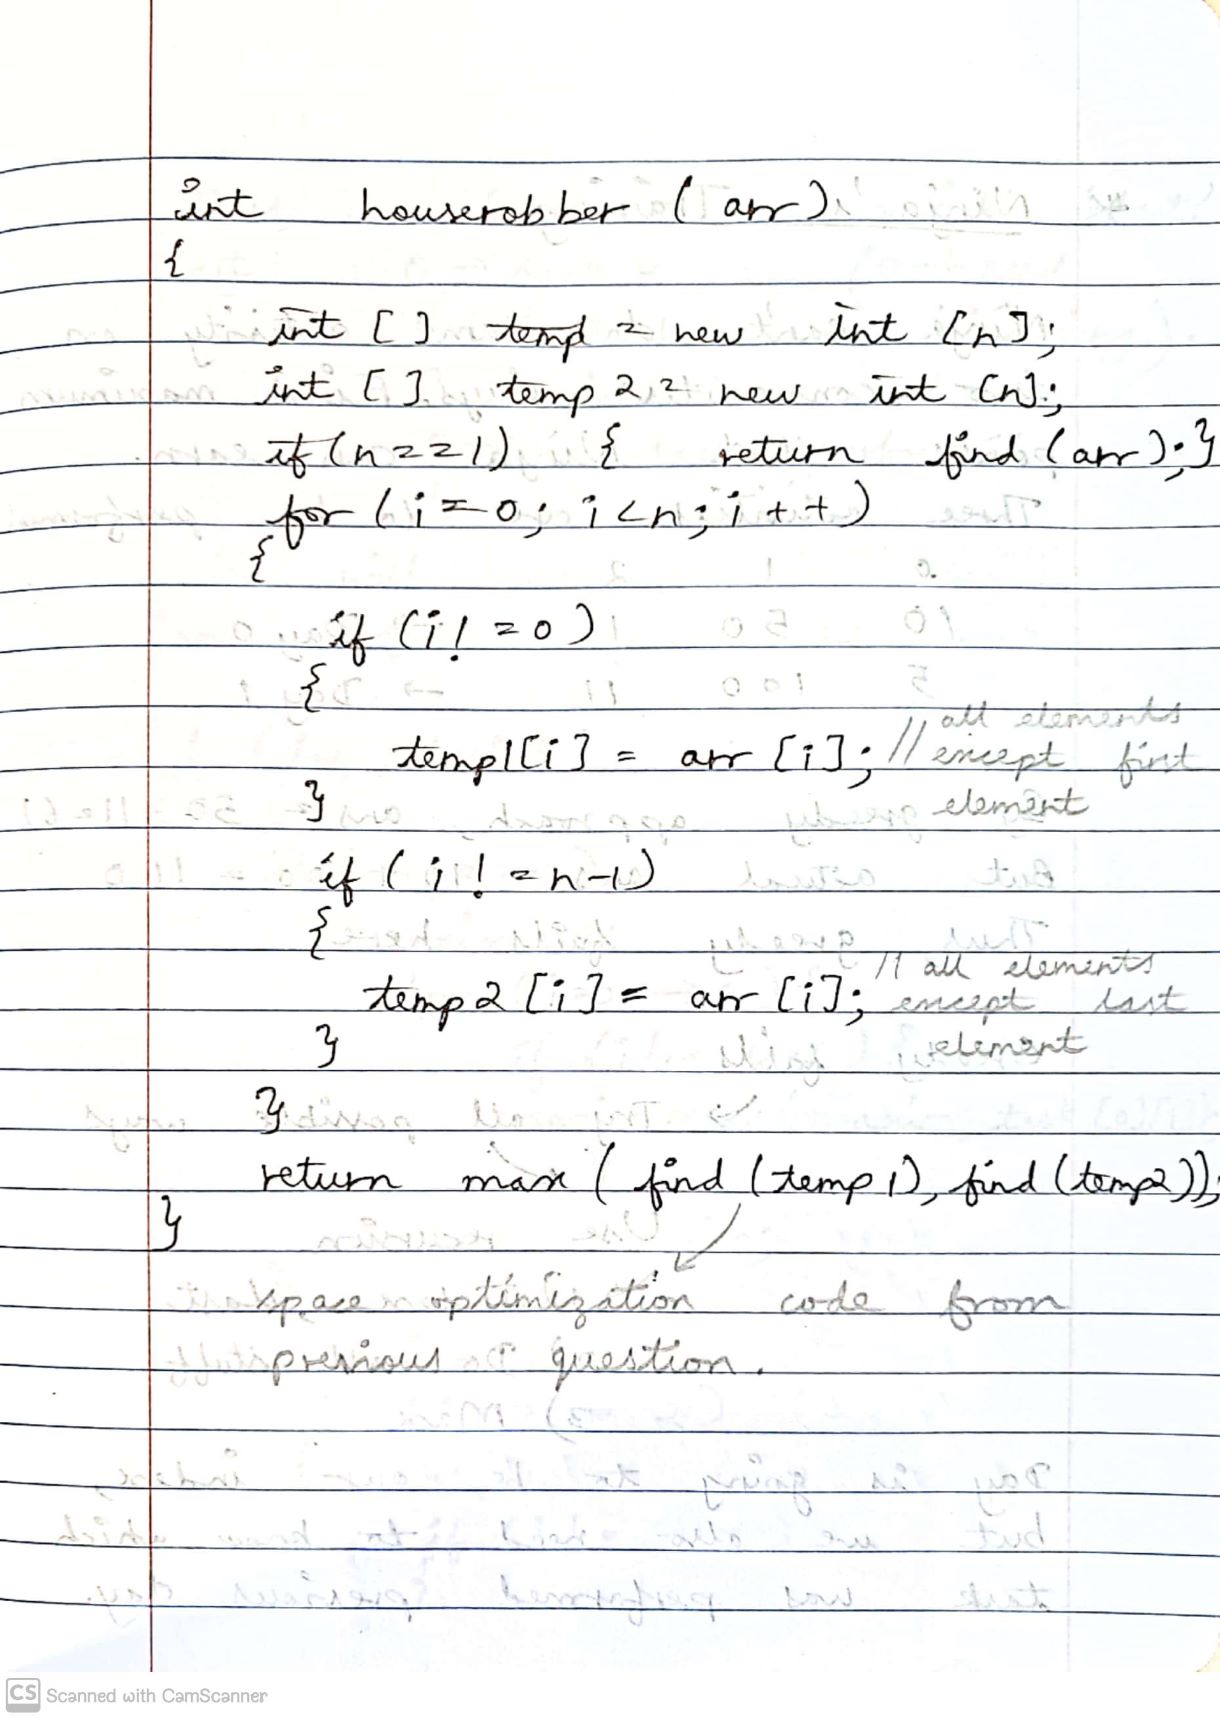 int houserobber (arr)
{
int [] temp = new int [n];
int [] temp2 = new int [n];
if (n==1) { return find (arr); }
for (i=0; i<n; i++)
{
if (i!=0)
{
temp1[i] = arr [i]; // all elements except first element
}
if (i!=n-1)
{
temp2 [i] = arr [i]; // all elements except last element
}
}
return max (find (temp1), find (temp2));
}
space optimization code from
previous question.
CS Scanned with CamScanner